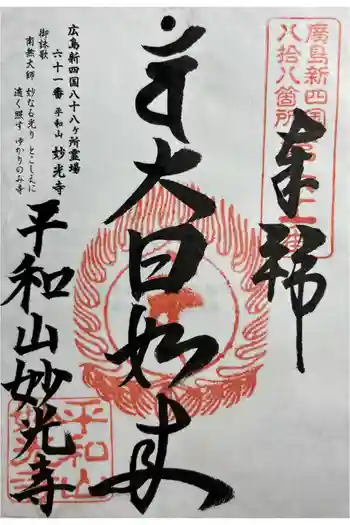 廣島新四国
八拾八箇所
奉拝
大日如来
広島新四国八十八ヶ所霊場
六十一番 平和山 妙光寺
御詠歌
南無大師 妙なる光り とこしえに
遠く照す ゆかりのみ寺
平和山妙光寺
平和山